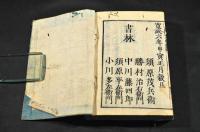 寛政六年甲寅正月穀旦
須原茂兵衛
勝村治右衛門
中川藤四郎
須原平左衛門
小川多左衛門
書林